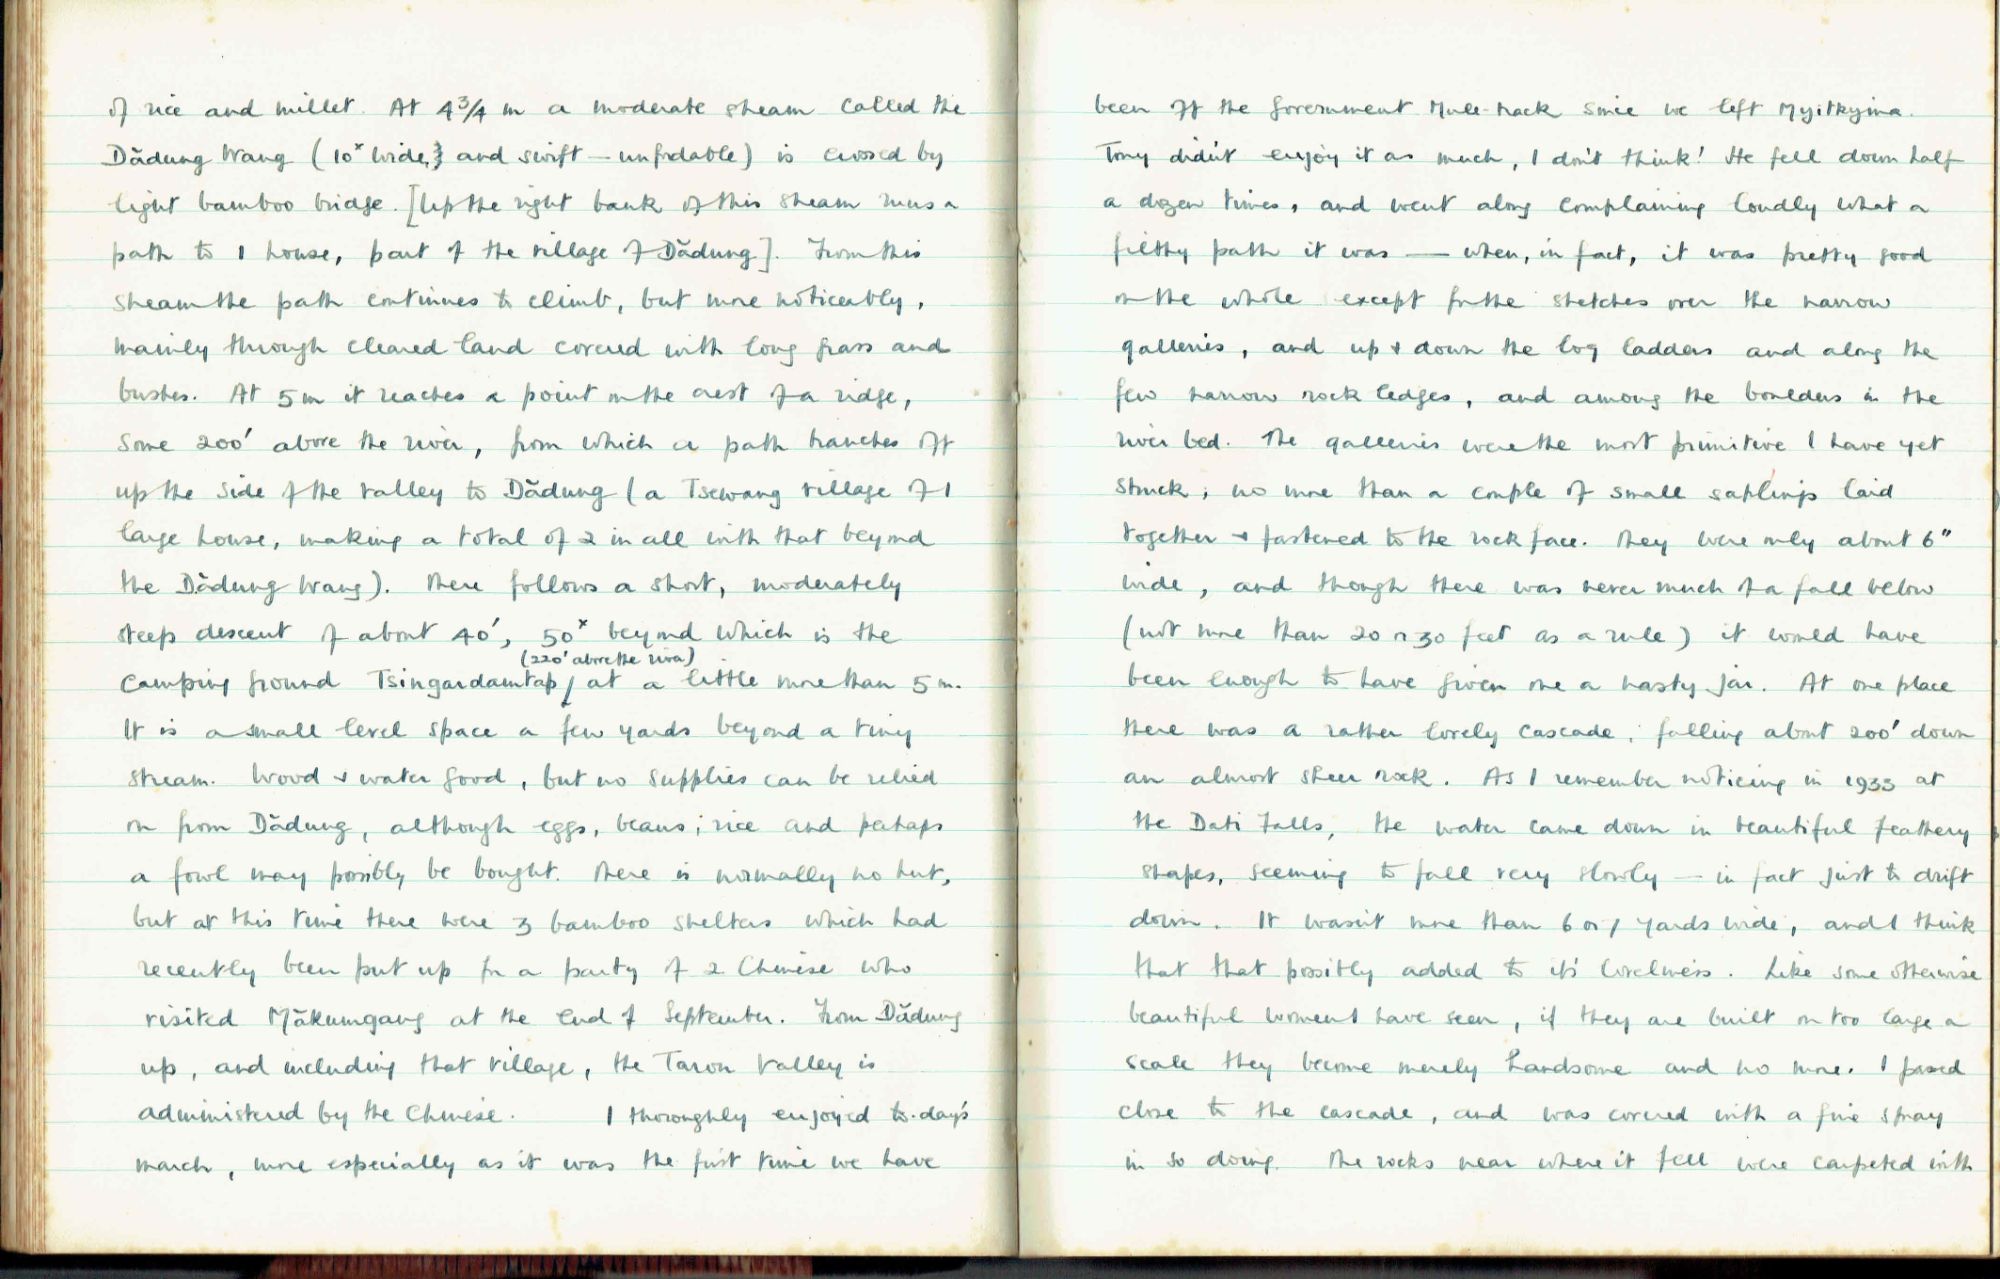 of rice and millet. At 4¾ m a moderate stream called the
Dădung Wang (10ˣ wide, and swift — unfordable) is crossed by
light bamboo bridge. [Up the right bank of this stream runs a
path to 1 house, part of the village of Dădung]. From this
stream the path continues to climb, but more noticeably,
mainly through cleared land covered with long grass and
bushes. At 5 m it reaches a point on the crest of a ridge,
some 200' above the river, from which a path branches off
up the side of the valley to Dădung (a Tsewang village of 1
large house, making a total of 2 in all with that beyond
the Dădung Wang). There follows a short, moderately
steep descent of about 40', 50ˣ beyond which is the
(220' above the river)
camping ground Tsingardamtap / at a little more than 5 m.
It is a small level space a few yards beyond a tiny
stream. Wood & water good, but no supplies can be relied
on from Dădung, although eggs, beans, rice and perhaps
a fowl may possibly be bought. There is normally no hut,
but at this time there were 3 bamboo shelters which had
recently been put up for a party of 2 Chinese who
visited Măkumgang at the end of September. From Dădung
up, and including that village, the Taron Valley is
administered by the Chinese. I thoroughly enjoyed to-day's
march, more especially as it was the first time we have
been off the Government Mule-track since we left Myitkyina.
Tony didn't enjoy it as much, I don't think! He fell down half
a dozen times, and went along complaining loudly what a
filthy path it was — when, in fact, it was pretty good
on the whole except for the stretches over the narrow
galleries, and up & down the log ladders and along the
few narrow rock ledges, and among the boulders in the
river bed. The galleries were the most primitive I have yet
struck, no more than a couple of small saplings laid
together & fastened to the rock face. They were only about 6"
wide, and though there was never much of a fall below
(not more than 20 or 30 feet as a rule) it would have
been enough to have given one a nasty jar. At one place
there was a rather lovely cascade, falling about 200' down
an almost sheer rock. As I remember noticing in 1933 at
the Dati Falls, the water came down in beautiful feathery
shapes, seeming to fall very slowly — in fact just to drift
down. It wasn't more than 6 or 7 yards wide, and I think
that that possibly added to it's loveliness. Like some otherwise
beautiful women I have seen, if they are built on too large a
scale they become merely handsome and no more. I passed
close to the cascade, and was covered with a fine spray
in so doing. The rocks near where it fell were carpeted with